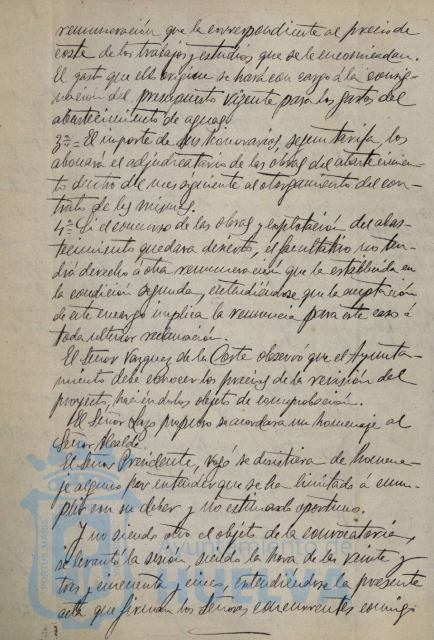 remuneración que la correspondiente al precio de
coste de los trabajos y estudios que se le encomiendan.
El gasto que ello origine se hará con cargo á la consig-
nación del presupuesto vigente para los gastos del
abastecimiento de aguas.
3ª = El importe de sus honorarios, segun tarifa, los
abonará el adjudicatario de las obras del abastecimien-
to dentro del mes siguiente al otorgamiento del con-
trato de las mismas.
4ª = Si el concurso de las obras y explotación del abas-
tecimiento quedara desierto, el facultativo no ten-
drá derecho á otra remuneración que la establecida en
la condición segunda, entendiéndose que la aceptación
de este encargo implica la renuncia para este caso á
toda ulterior reclamación.
El Señor Vazquez de la Corte observó que el Ayunta-
miento debe conocer los precios de la revisión del
proyecto, haciendolos objeto de comprobación.
El Señor Lazo propuso se acordara un homenaje al
Señor Alcalde.
El Señor Presidente, rogó se desistiera de homena-
je alguno por entender que se ha limitado á cum-
plir con su deber y no estimarlo oportuno.
Y no siendo otro el objeto de la convocatoria,
se levantó la sesión, siendo la hora de las veinte y
tres y cincuenta y cinco, extendiéndose la presente
acta que firman los Señores concurrentes conmigo
PORTUS MARIS
Ayuntamiento de
HUELVA